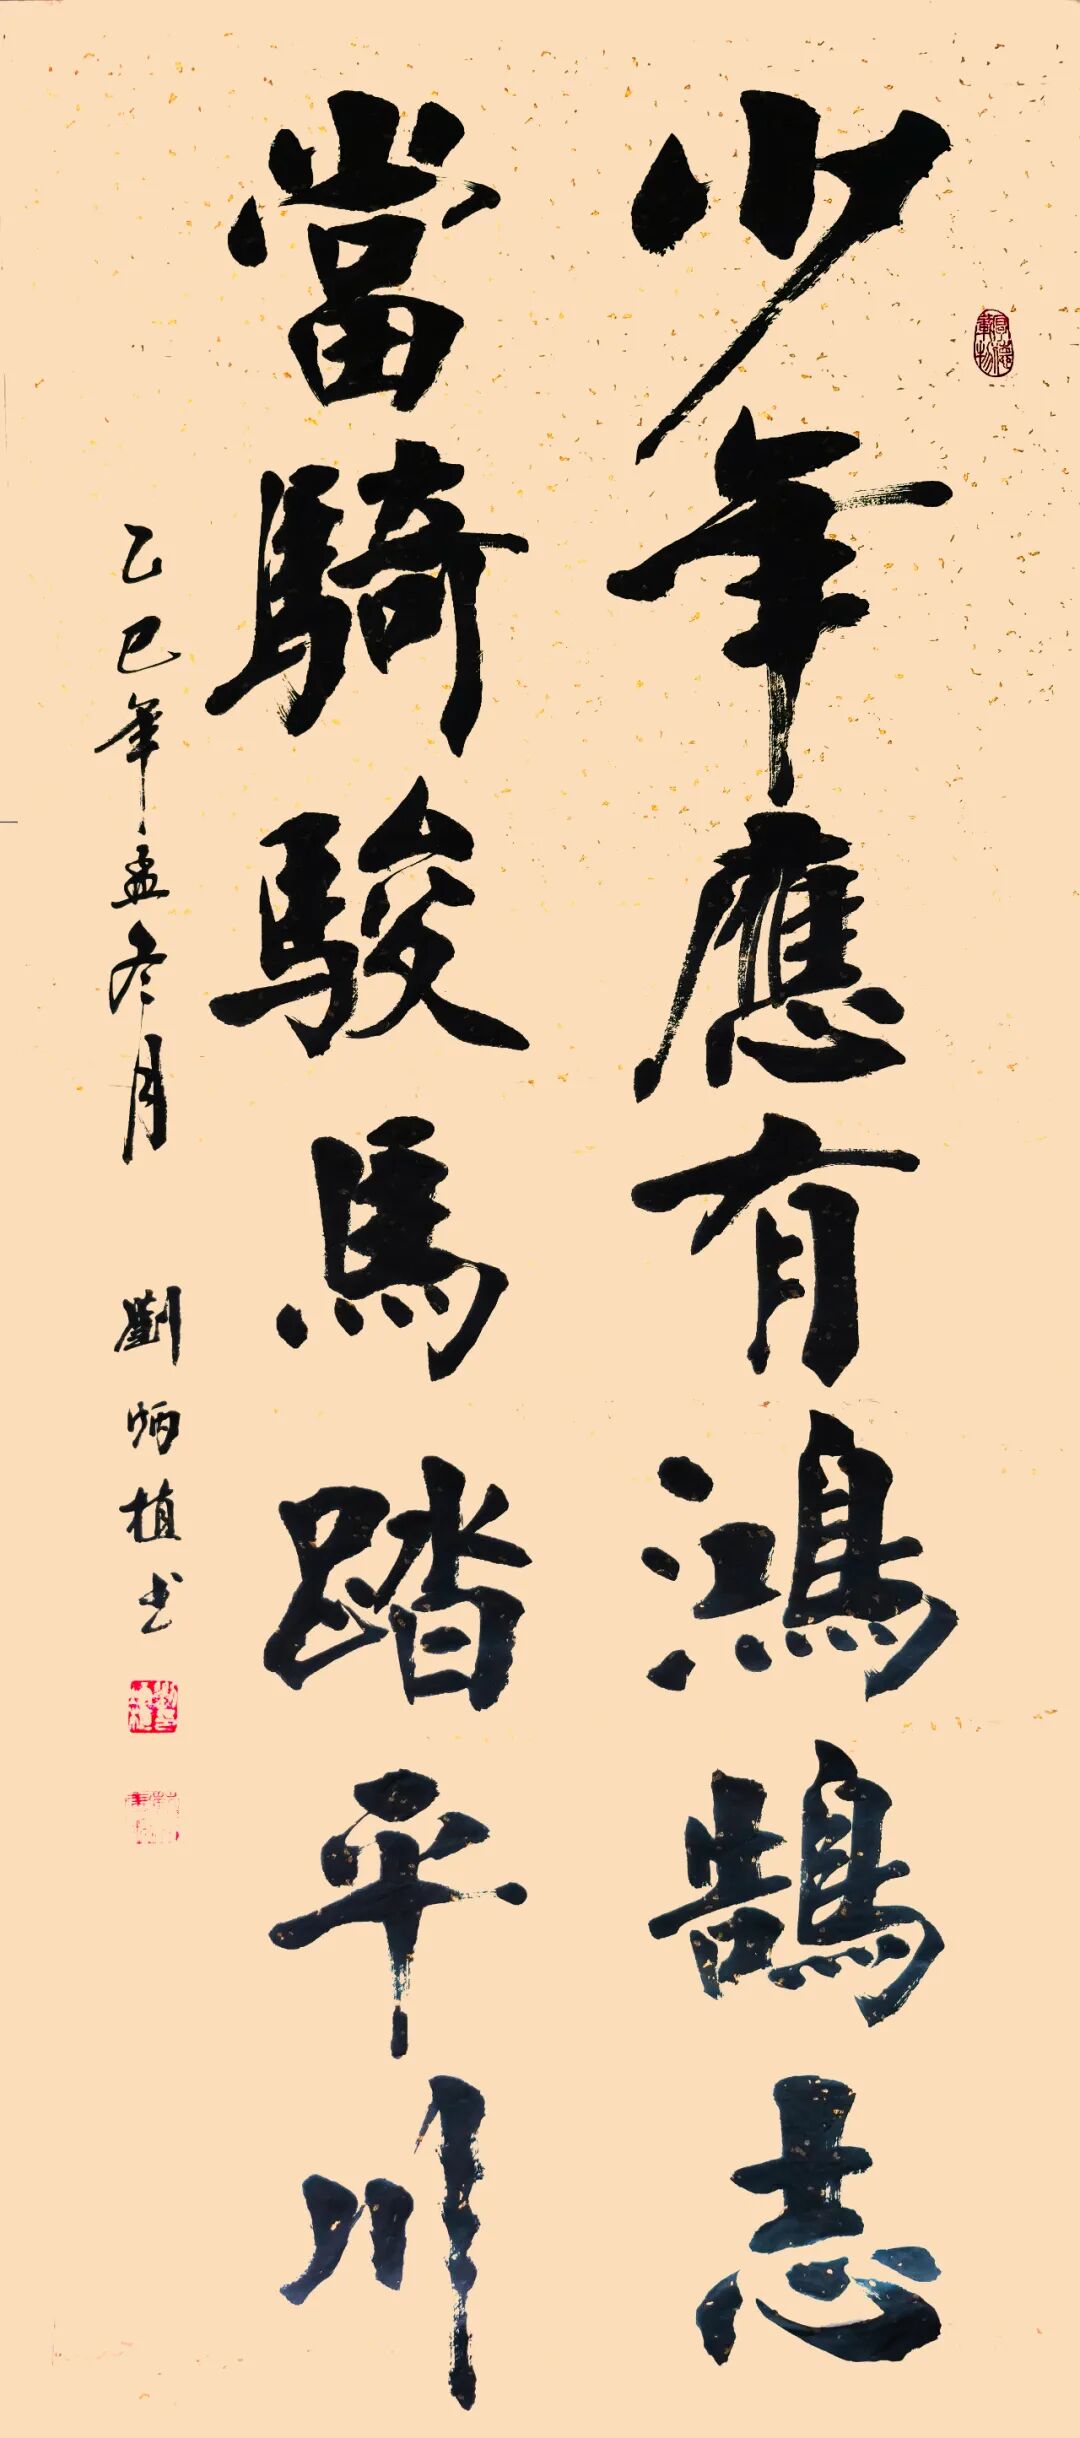 少年應有鴻鵠志
當騎駿馬踏平川
乙巳年孟冬月 劉炳植书
厚德載物